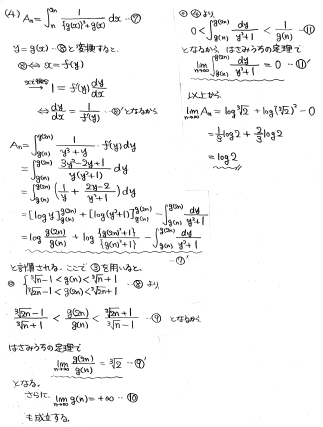 (4) Aₙ = ∫ₙ²ⁿ 1/({g(x)}³+g(x)) dx …⑦
y = g(x) …⑧ と変換すると、
⑧ ⇔ x = f(y)
1 = f'(y) dy/dx
⇔ dy/dx = 1/f'(y) …⑧' となるから
Aₙ = ∫_{g(n)}^{g(2n)} 1/(y³+y) · f'(y) dy
= ∫_{g(n)}^{g(2n)} (3y²-2y+1)/(y(y²+1)) dy
= ∫_{g(n)}^{g(2n)} (1/y + (2y-2)/(y²+1)) dy
= [log y]_{g(n)}^{g(2n)} + [log(y²+1)]_{g(n)}^{g(2n)} - ∫_{g(n)}^{g(2n)} dy/(y²+1)
= log g(2n)/g(n) + log {g(2n)²+1}/{g(n)²+1} - ∫_{g(n)}^{g(2n)} dy/(y²+1)
…⑦'
と計算される。ここで③を用いると、
{ ³√n -1 < g(n) < ³√n +1
³√2n -1 < g(2n) < ³√2n +1 …⑧ より、
(³√2n -1)/(³√n +1) < g(2n)/g(n) < (³√2n +1)/(³√n -1) …⑨ となるから
はさみうちの定理で
lim_{n→∞} g(2n)/g(n) = ³√2 …⑨'
となる。
さらに、lim_{n→∞} g(n) = +∞ …⑩
も成立する。
より、
0 < ∫_{g(n)}^{g(2n)} dy/(y²+1) < 1/g(n) …⑪
となるから、はさみうちの定理で
lim_{n→∞} ∫_{g(n)}^{g(2n)} dy/(y²+1) = 0 …⑪'
以上から、
lim_{n→∞} Aₙ = log ³√2 + log(³√2)² - 0
= 1/3 log2 + 2/3 log2
= log 2